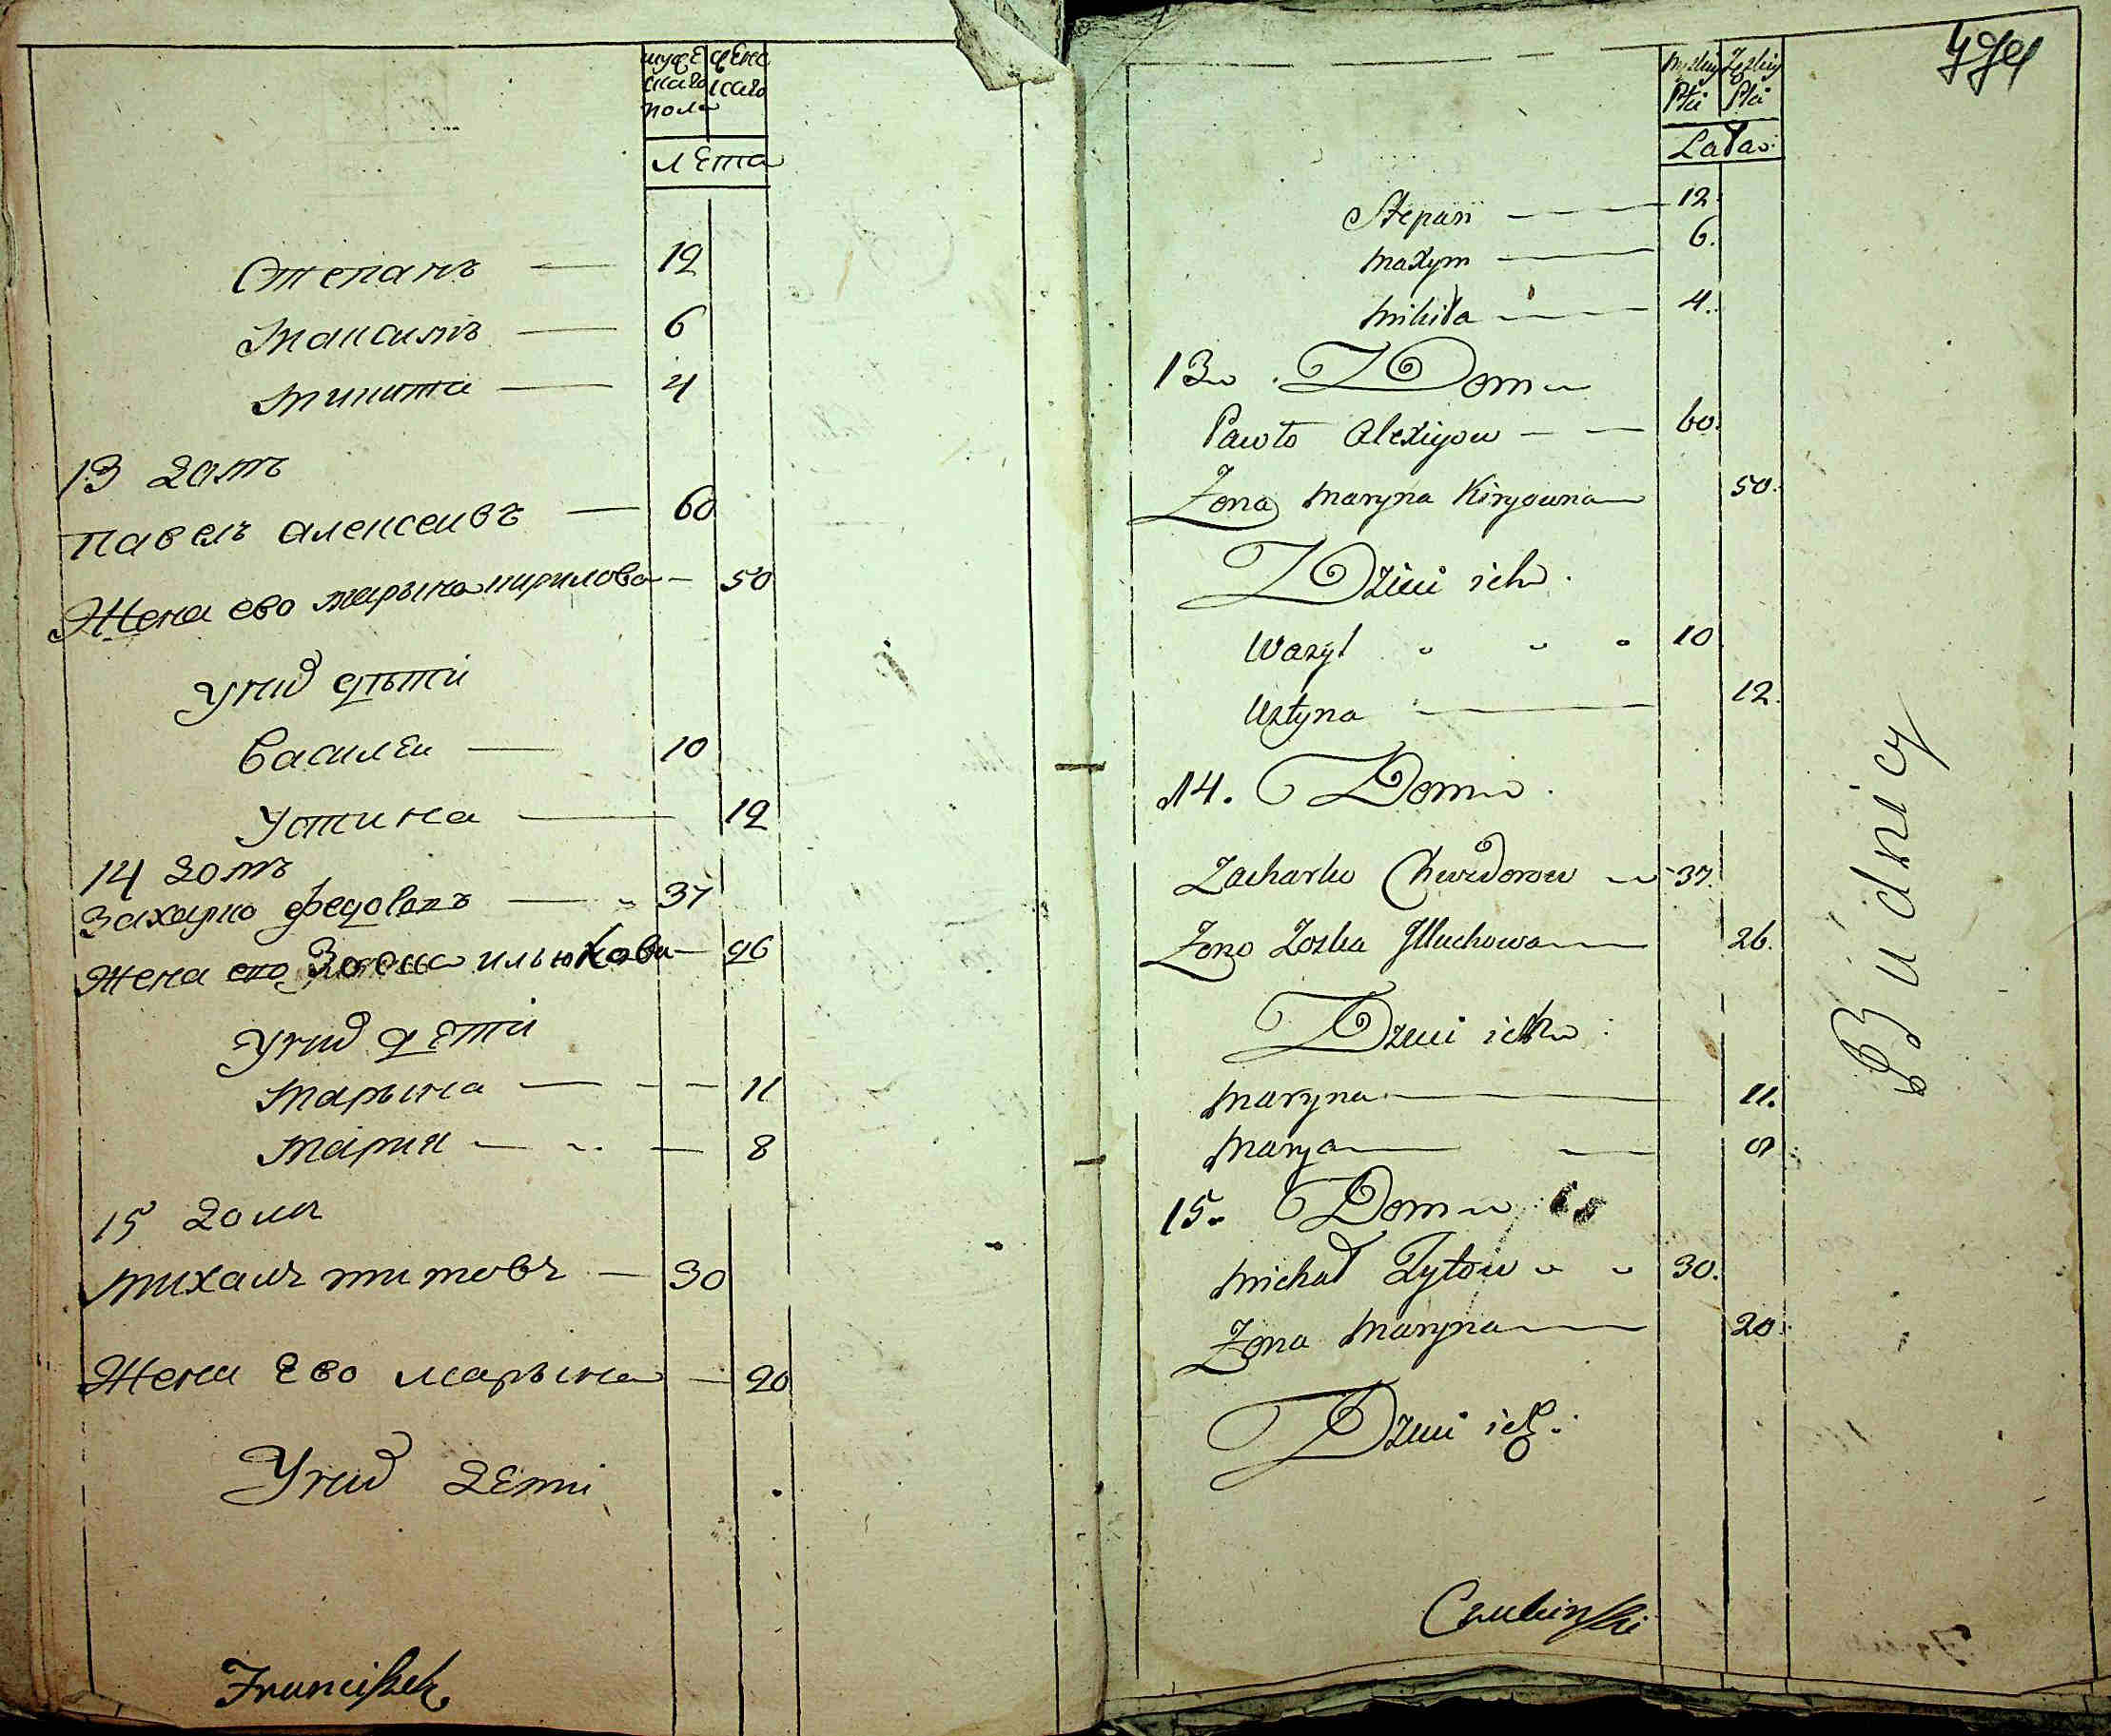 мужескаго пола
женскаго
лѣта
Степанъ — 12
Максимъ — 6
Микита — 4
13 домъ
Павелъ Алексеивъ — 60
Жена ево Марына Кирилова — 50
У нихъ дѣти
Василеи — 10
Устина — 12
14 домъ
Захарко Федоровъ — 37
Жена ево Зоска Ильюхова — 26
У нихъ дети
Марына — 11
Мария — 8
15 домъ
Михаилъ Титовъ — 30
Жена Ево Марына — 20
У нихъ дети
Franciszek
Męzkiey Płci
Żęzkiey Płci
Lata
Stepan — 12.
Maxym — 6.
Mikita — 4.
13. Dom
Pawło Alexiyow — 60.
Zona Maryna Kiryowna 50.
Dzieci ich.
Wazyl 10
Ustyna — 12.
14. Dom.
Zacharko Chwedorow 37.
Zona Zoska Illuchowa 26.
Dzieci ich:
Maryna — 11.
Marya — 8
15. Dom
Michał Tytow 30.
Zona Maryna 20.
Dzieci ich:
Budnicy